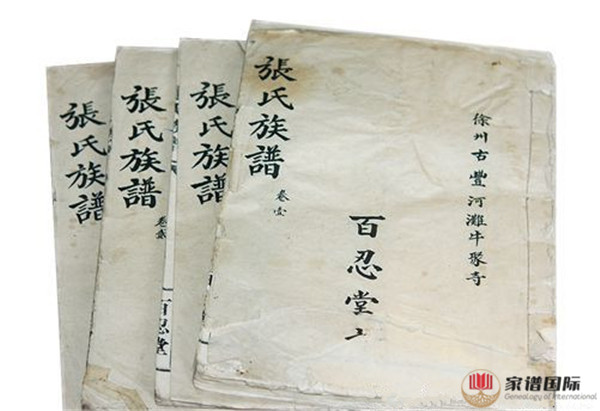 張氏族譜
張氏族譜 卷貳
張氏族譜
張氏族譜 卷壹
百忍堂
徐州古豐河灘牛聚寺
百忍堂
家谱国际
Genealogy of International